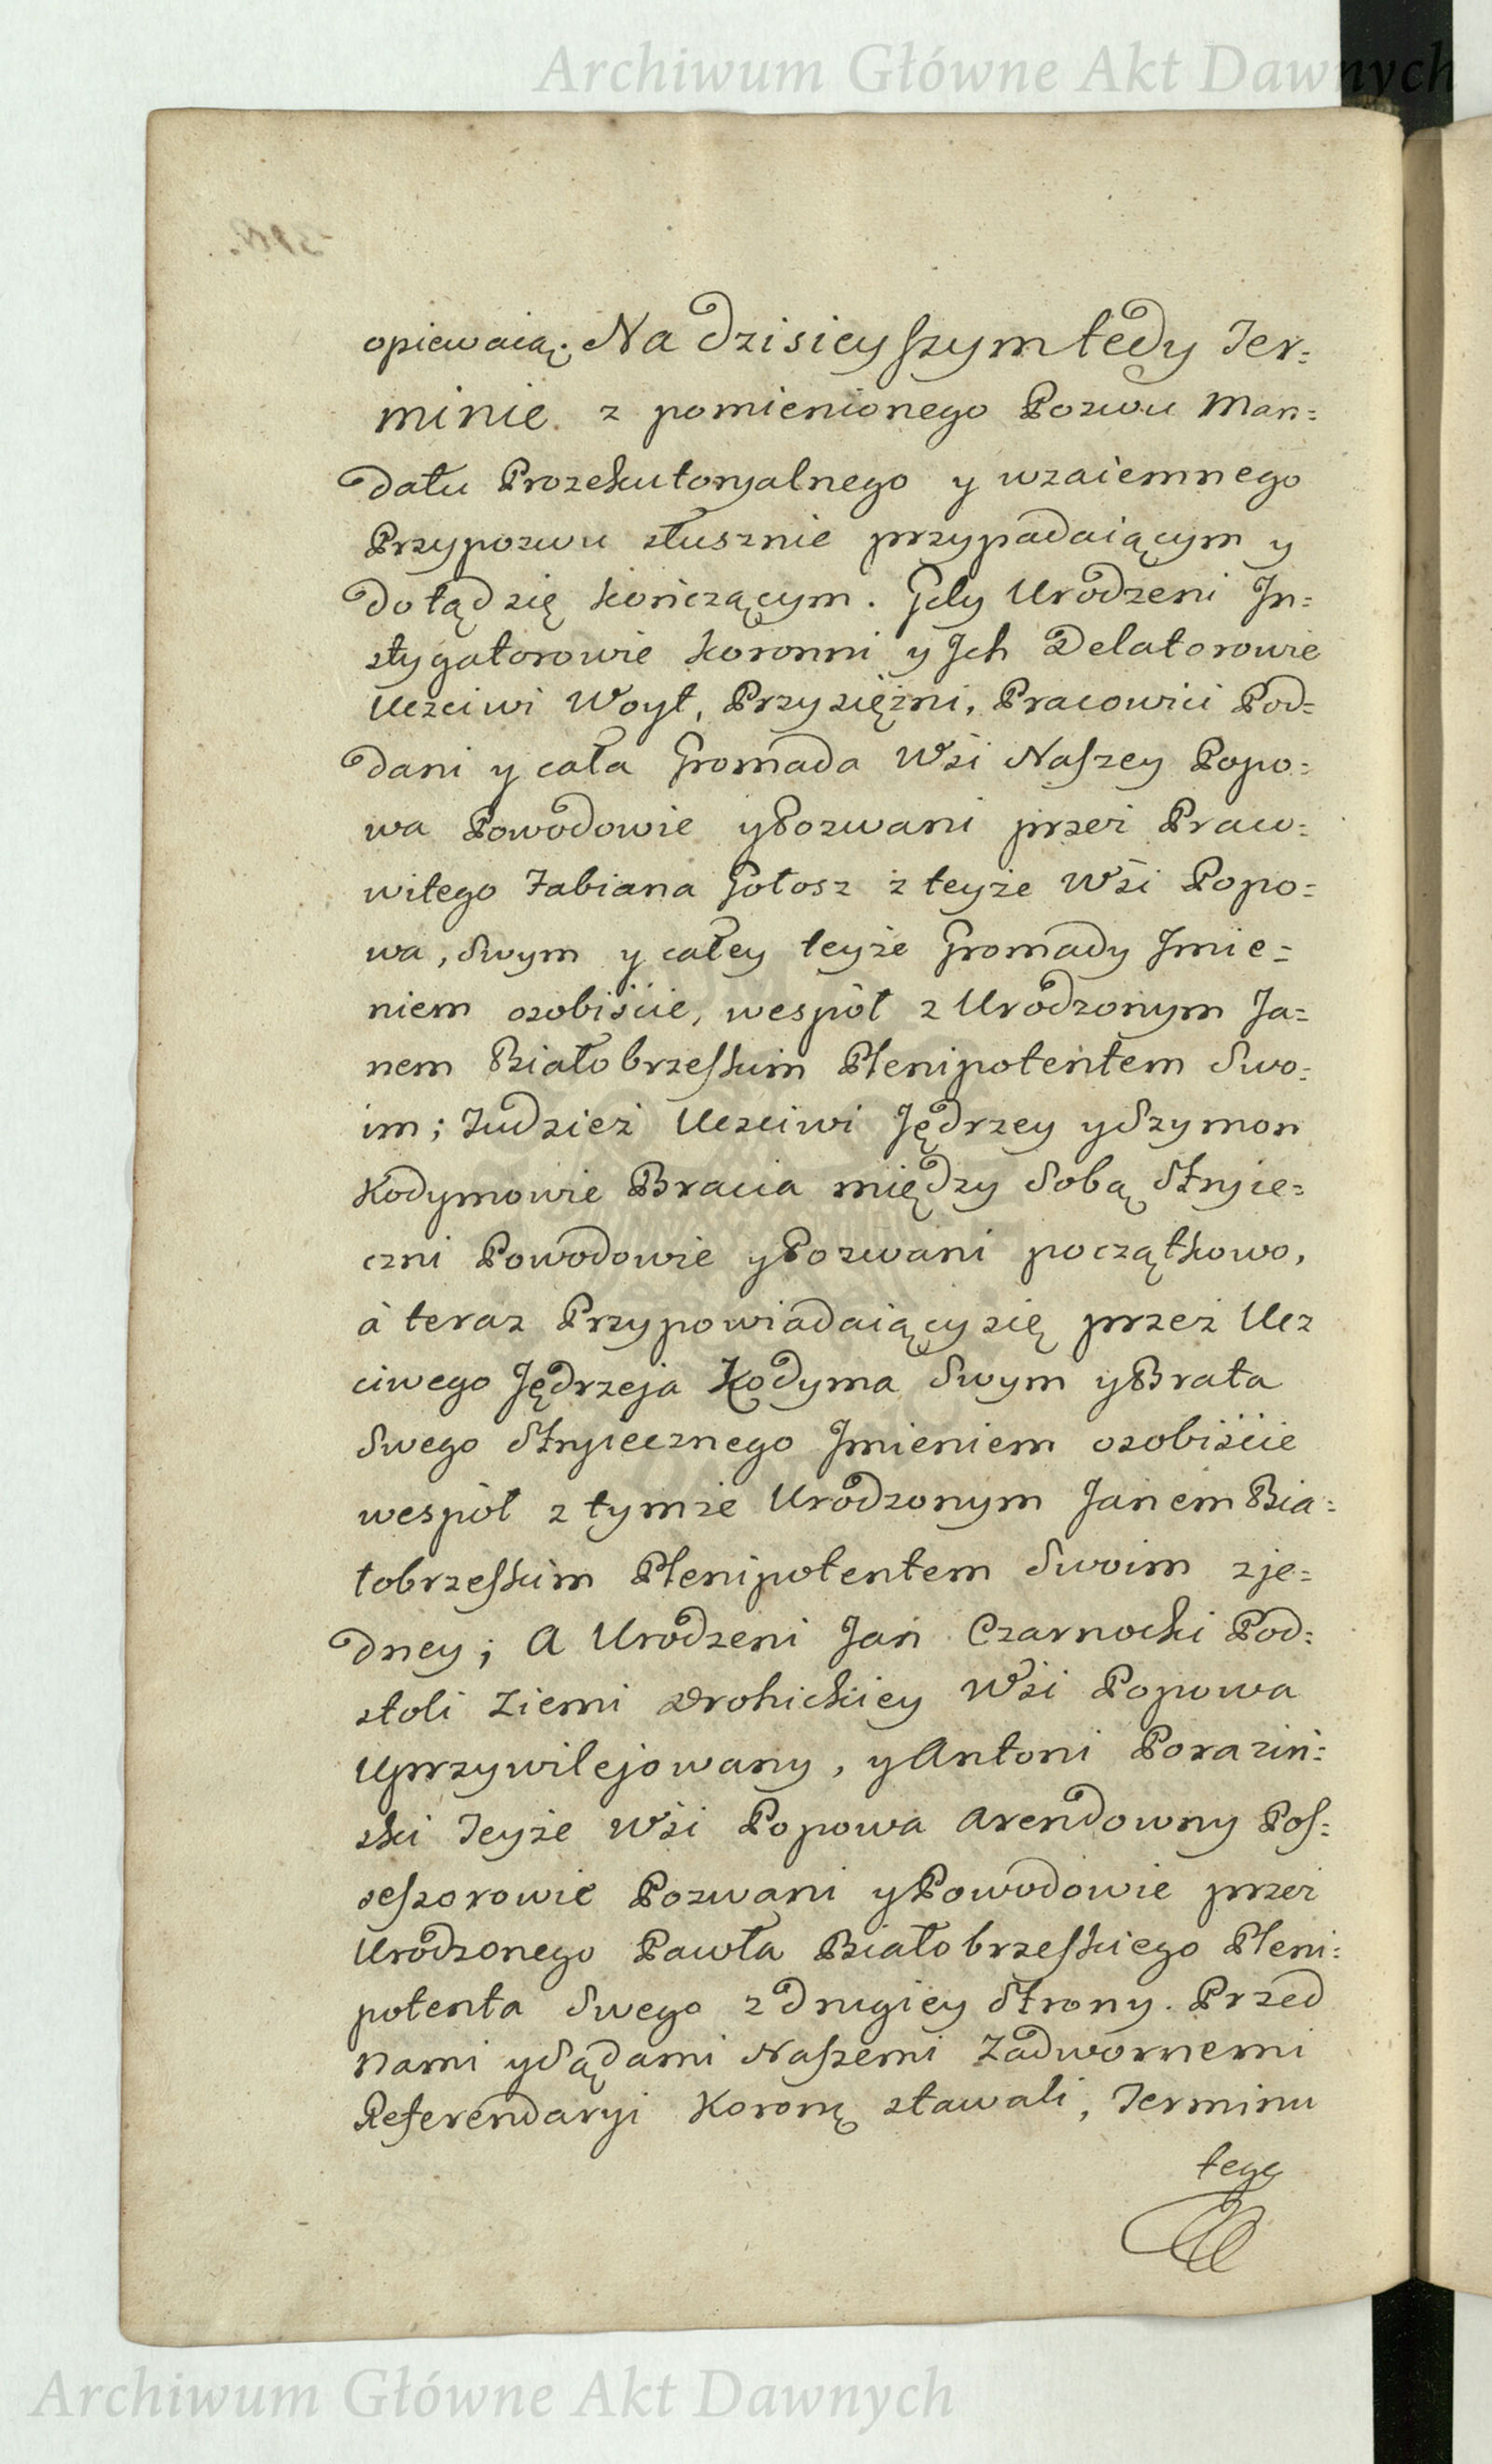 Archiwum Główne Akt Dawnych
opiewaią. Na dzisieyszym tedy Ter=
minie z pomienionego Pozwu Man=
datu Prozekutoryalnego y wzaiemnego
Przypozwu słusznie przypadaiącym y
dotąd się kończącym. Gdy Urodzeni In=
stygatorowie Koronni y Jch Delatorowie
Uczciwi Woyt, Przysiężni, Pracowici Pod=
dani y cała Gromada Wsi Naszey Popo=
wa Powodowie y Pozwani przez Praco=
witego Fabiana Gołosz z teyże Wsi Popo=
wa, Swym y całey teyże Gromady Jmie=
niem osobiście, wespół z Urodzonym Ja=
nem Białobrzeskim Plenipotentem Swo=
im; Tudzież Uczciwi Jędrzey y Szymon
Kodymowie Bracia między Sobą Stryie=
czni Powodowie y Pozwani początkowo,
à teraz Przypowiadaiący się przez Ucz
ciwego Jędrzeja Kodyma Swym y Brata
Swego Stryiecznego Jmieniem osobiście
wespół z tymże Urodzonym Janem Bia=
łobrzeskim Plenipotentem Swoim z je=
dney; A Urodzeni Jan Czarnocki Pod=
stoli Ziemi Drohickiey Wsi Popowa
Uprzywilejowany, y Antoni Poraziń=
ski Teyże Wsi Popowa Arendowny Pos=
sessorowie Pozwani y Powodowie przez
Urodzonego Pawła Białobrzeskiego Pleni=
potenta Swego z drugiey Strony. Przed
Nami y Sądami Naszemi Zadwornemi
Referendaryi Koronnę stawali, Terminu
tego
Archiwum Główne Akt Dawnych